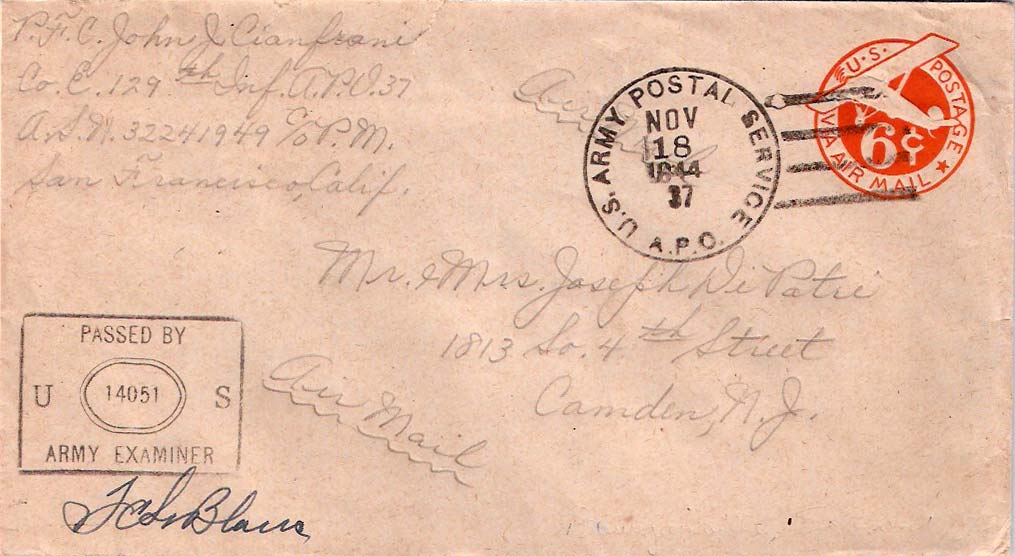 P.F.C. John J Cianfrani
Co. E. 129 th Inf. A.P.O. 37
A.S.N. 32241949 c/o P.M.
San Francisco, Calif.
Air
U.S. ARMY POSTAL SERVICE
NOV
18
1944
37
A.P.O.
U.S. POSTAGE
6¢
VIA AIR MAIL
Mr. & Mrs. Joseph Di Patri
1813 So. 4 th Street
Camden, N.J.
Air Mail
PASSED BY
U 14051 S
ARMY EXAMINER